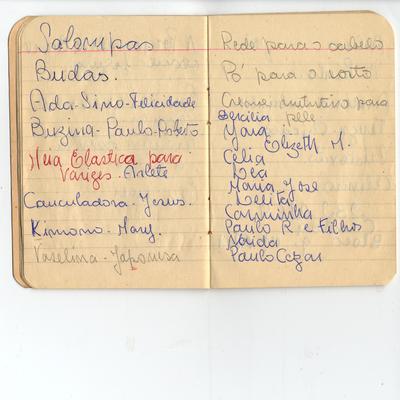 Salompas
Budas.
Ada-Sino-Felicidade
Buzina-Paulo-Roberto
Meia Elastica para
Varizes-Arlete
Cauculadora-Jesus.
Kimono-Mary.
Vaselina-Japonesa
Rede para o cabelo
Pó para o rosto
Creme nutritivo para
pele
Bercilia
Yara
Elizeth M.
Célia
Déa
Maria José
Delita
Carminha
Paulo R e Filhos
Naida
Paulo Cezar